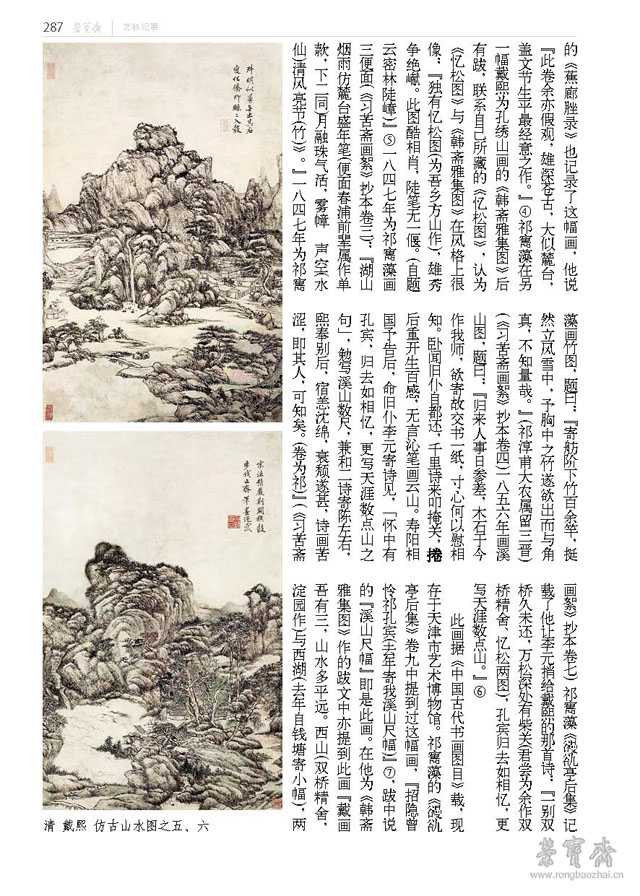 287 荣宝斋 艺林纪事
的《蕉廊脞录》也记录了这幅画，他说
『此卷余亦假观，雄深苍古，大似麓台，
盖文节生平最经意之作。』④祁寯藻在另
一幅戴熙为孔绣山画的《韩斋雅集图》后
有跋，联系自己所藏的《忆松图》，认为
《忆松图》与《韩斋雅集图》在风格上很
像：『独有忆松图(为吾乡方山作)，雄秀
争绝巘。此图酷相肖，陡笔无一偃。(自题
云密林陡嶂)』⑤一八四七年为祁寯藻画
三便面(《习苦斋画絮》抄本卷三)，『湖山
烟雨仿麓台盛年笔(便面春浦前辈属作单
款，下二同)月融珠气活，雾嶂 声空水
仙)清风亮节(竹)》。』一八四七年为祁寯
藻画竹图，题曰：『寄舫阶下竹百余竿，挺
然立风雪中，予胸中之竹遂欲出而与角
真，不知量哉。』(祁淳甫大农属留三晋)
(《习苦斋画絮》抄本卷四)一八五六年画溪
山图，题曰：『归来人事日参差，木石于今
作我师，欲寄故交书一纸，寸心何以慰相
知。卧闻旧仆自都还，千里诗来叩掩关，捲
后重开生百感，无言沁笔画云山。寿阳相
国予告后，命旧仆李元寄诗见，「怀中有
孔宾，归去如相忆，更写天涯数点山之
句」，勉写溪山数尺，兼和二诗寄陈左右，
熙奉别后，宿恙沈绵，衰颓遂甚，诗画苦
涩，即其人，可知矣。(卷为祁)』(《习苦斋
画絮》抄本卷七)祁寯藻《䜱䜪亭后集》记
载了他让李元捎给戴熙的那首诗，『一别双
桥久未还，万松深处有柴关(君尝为余作双
桥精舍、忆松两图)，孔宾归去如相忆，更
写天涯数点山。』⑥
此画据《中国古代书画图目》载，现
存于天津市艺术博物馆。祁寯藻的《䜱䜪
亭后集》卷九中提到过这幅画，『招隐曾
怜祁孔宾(去年寄我溪山尺幅)』⑦，跋中说
的『溪山尺幅』即是此画。在他为《韩斋
雅集图》作的跋文中亦提到此画『戴画
吾有三，山水多平远。西山(双桥精舍，
淀园作)与西湖(去年自钱塘寄小幅)，两
清 戴熙 仿古山水图之五、六
荣宝斋
www.rongbaozhai.cn